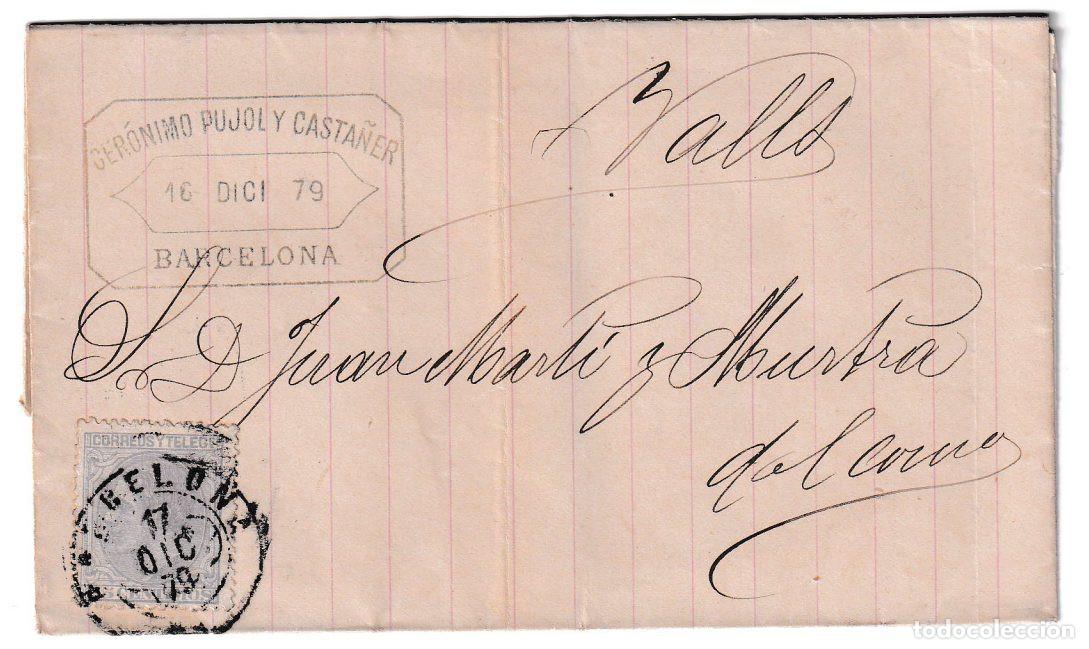 GERÓNIMO PUJOL Y CASTAÑER
16 DICI 79
BARCELONA
Valls
S. D. Juan Martí y Murtra
del Come
CORREOS Y TELEG
BARCELONA
17
DIC
79
todocoleccion